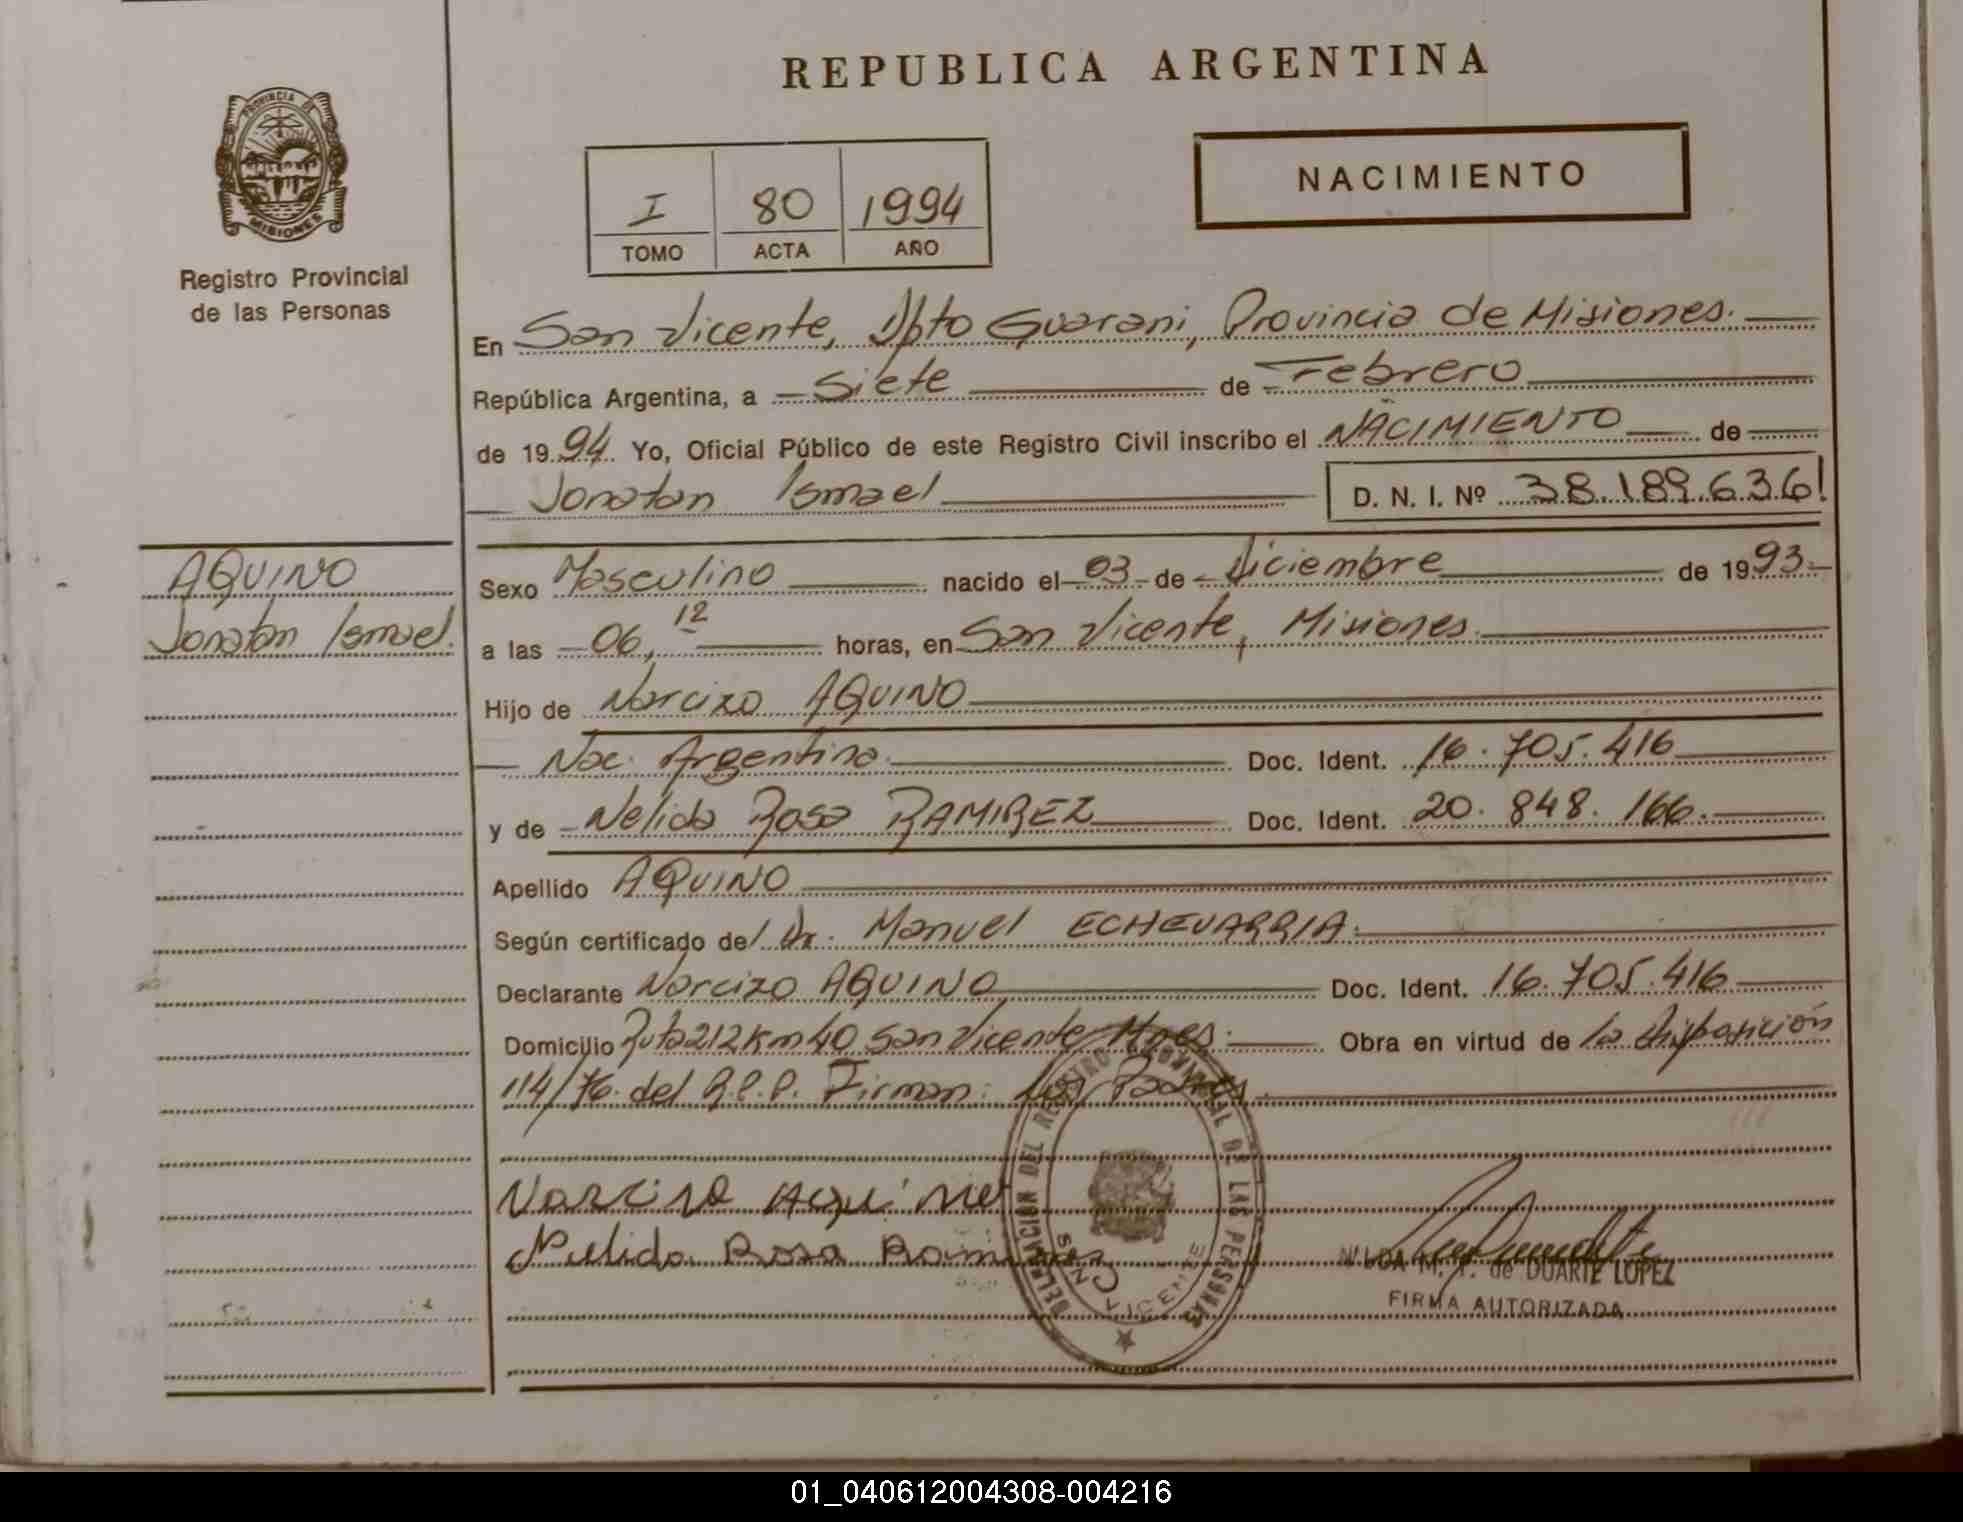 REPUBLICA ARGENTINA
PROVINCIA DE
MISIONES
Registro Provincial
de las Personas
I 80 1994
TOMO ACTA AÑO
NACIMIENTO
En San Vicente, Dpto Guarani, Provincia de Misiones.
República Argentina, a Siete de Febrero
de 1994 Yo, Oficial Público de este Registro Civil inscribo el NACIMIENTO de
Jonatan Ismael D. N. I. Nº 38.189.636
AQUINO
Jonatan Ismael.
Sexo Masculino nacido el 03 de Diciembre de 1993
a las 06,12 horas, en San Vicente, Misiones.
Hijo de Narcizo AQUINO
Nac. Argentina. Doc. Ident. 16.705.416
y de Nelida Rosa RAMIREZ Doc. Ident. 20.848.166.
Apellido AQUINO
Según certificado del Dr. Manuel ECHEVARRIA.
Declarante Narcizo AQUINO Doc. Ident. 16.705.416
Domicilio Ruta 212 Km 40 San Vicente Mnes. Obra en virtud de la disposición
114/76. del R.P.P. Firman: los Padres.
Narciso Aquino
Nelida Rosa Ramirez
DELEGACION DEL REGISTRO PROVINCIAL DE LAS PERSONAS
SAN VICENTE
de DUARTE LOPEZ
FIRMA AUTORIZADA
01_040612004308-004216